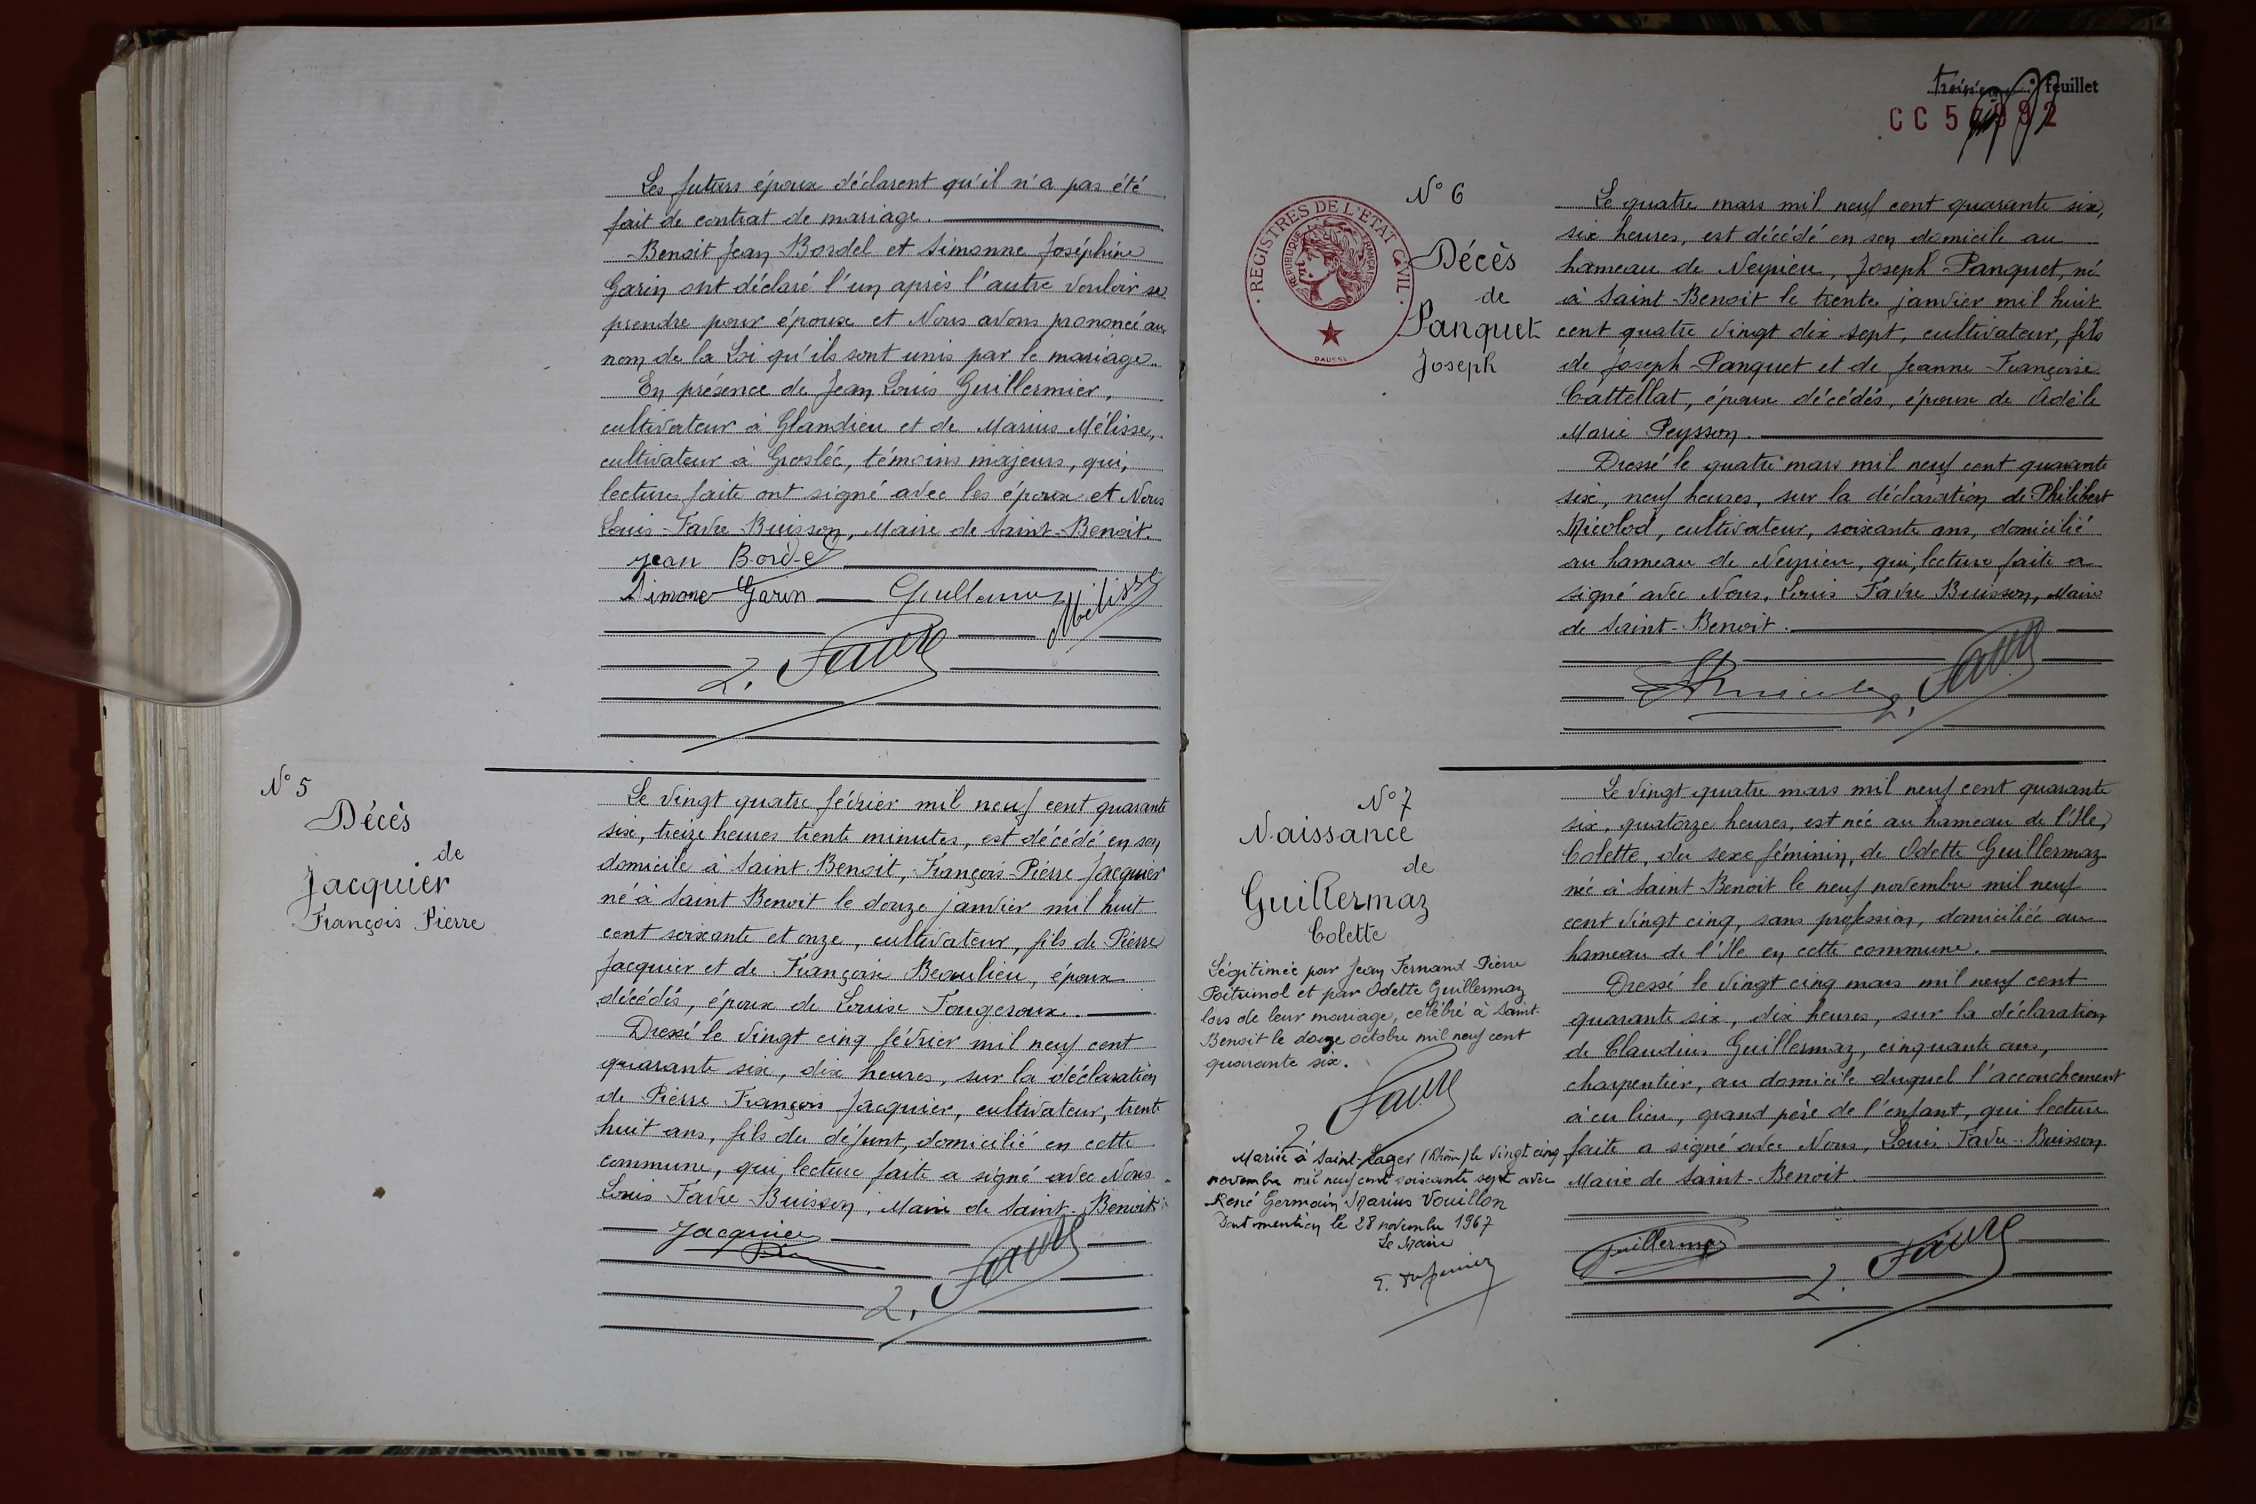 Les futurs époux déclarent qu'il n'a pas été
fait de contrat de mariage.
Benoit Jean Bordel et Simonne Joséphine
Garin ont déclaré l'un après l'autre vouloir se
prendre pour époux et Nous avons prononcé au
nom de la Loi qu'ils sont unis par le mariage.
En présence de Jean Louis Guillermier,
cultivateur à Glandieu et de Marius Mélisse,
cultivateur à Groslée, témoins majeurs, qui,
lecture faite ont signé avec les époux et Nous
Louis Favre-Buisson, Maire de Saint-Benoit.
Jean Bordel
Simone Garin Guillermier Mélisse
L. Favre
N° 5
Décès
de
Jacquier
François Pierre
Le vingt quatre février mil neuf cent quarante
six, treize heures trente minutes, est décédé en son
domicile à Saint Benoit, François-Pierre Jacquier
né à Saint Benoit le douze janvier mil huit
cent soixante et onze, cultivateur, fils de Pierre
Jacquier et de Françoise Beaulieu, époux
décédés, époux de Louise Fougeroux.
Dressé le vingt cinq février mil neuf cent
quarante six, dix heures, sur la déclaration
de Pierre François Jacquier, cultivateur, trente
huit ans, fils du défunt, domicilié en cette
commune, qui, lecture faite a signé avec Nous
Louis Favre Buisson, Maire de Saint-Benoit.
Jacquier
L. Favre
troisième feuillet
CC 5
N° 6
REGISTRES DE L'ETAT CIVIL
REPUBLIQUE FRANÇAISE
Décès
de
Panquet
Joseph
Le quatre mars mil neuf cent quarante six,
six heures, est décédé en son domicile au
hameau de Neyrieu, Joseph Panquet, né
à Saint Benoit le trente janvier mil huit
cent quatre vingt dix sept, cultivateur, fils
de Joseph Panquet et de Jeanne Françoise
Cattellat, époux décédés, époux de
Marie Peysson.
Dressé le quatre mars mil neuf cent quarante
six, neuf heures, sur la déclaration de Philibert
Nicolod, cultivateur, soixante ans, domicilié
au hameau de Neyrieu, qui, lecture faite a
signé avec Nous, Louis Favre Buisson, Maire
de Saint-Benoit.
L. Favre
N° 7
Naissance
de
Guillermaz
Colette
Légitimée par Jean Fernand Pierre
Poitrimol et par Odette Guillermaz
lors de leur mariage, célébré à Saint-
Benoit le douze octobre mil neuf cent
quarante six.
L. Favre
Mariée à Saint-Lager (Rhône) le vingt cinq
novembre mil neuf cent soixante sept avec
René Germain Marius Vouillon
Dont mention le 28 novembre 1967
Le Maire
Le vingt quatre mars mil neuf cent quarante
six, quatorze heures, est née au hameau de l'Ile,
Colette, du sexe féminin, de Odette Guillermaz
née à Saint Benoit le neuf novembre mil neuf
cent vingt cinq, sans profession, domiciliée au
hameau de l'Ile en cette commune.
Dressé le vingt cinq mars mil neuf cent
quarante six, dix heures, sur la déclaration
de Claudius Guillermaz, cinquante ans,
charpentier, au domicile duquel l'accouchement
a eu lieu, grand père de l'enfant, qui lecture
faite a signé avec Nous, Louis Favre-Buisson
Maire de Saint-Benoit.
Guillermaz
L. Favre